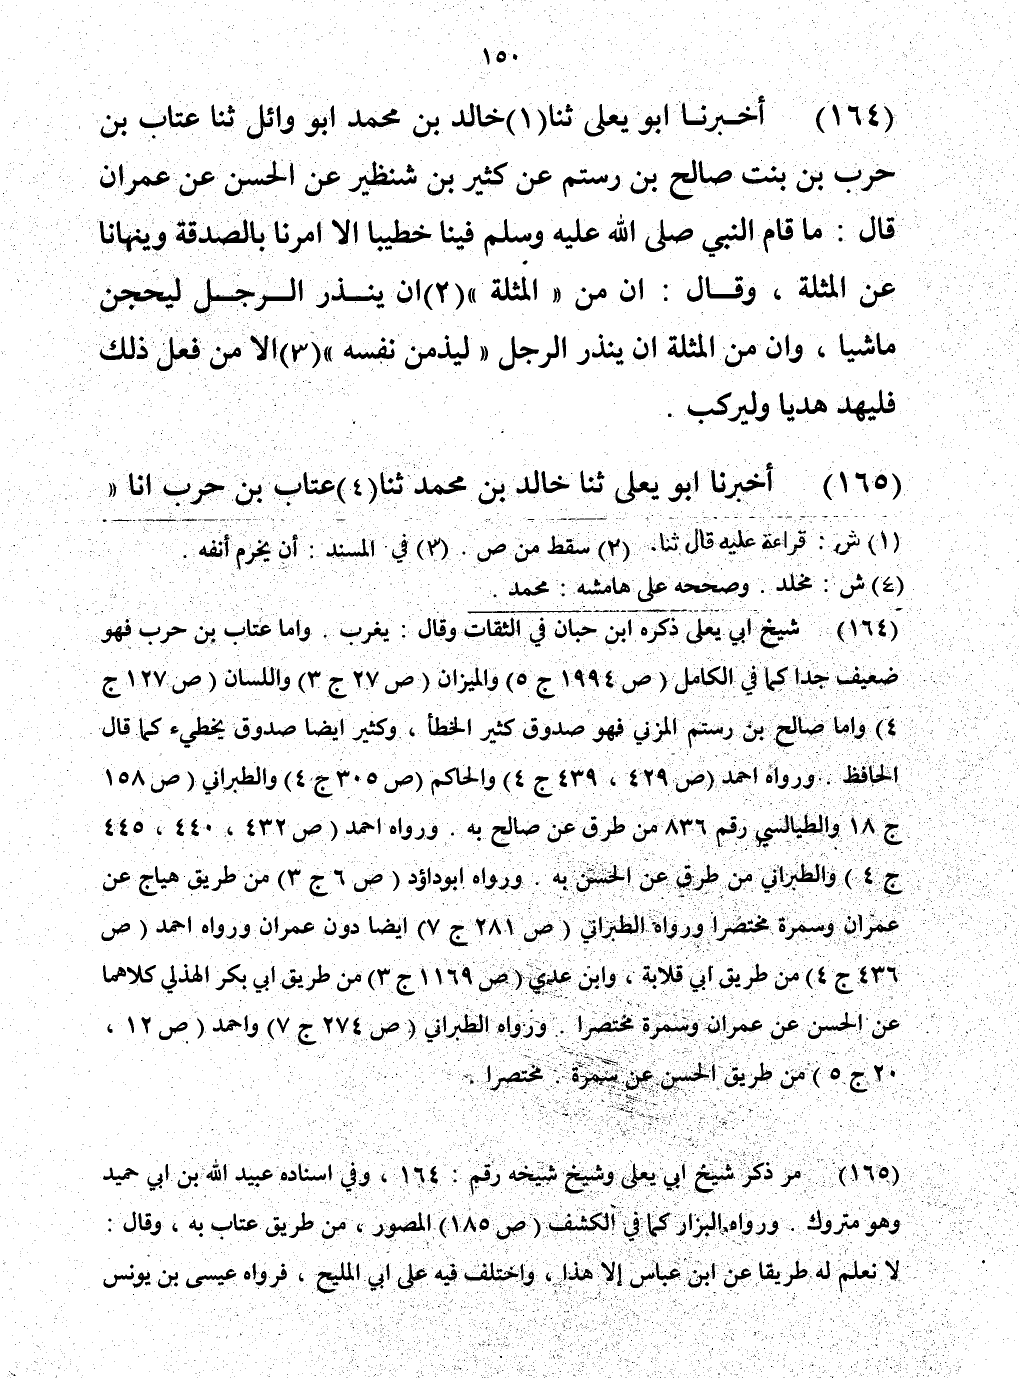 ١٥٠
(١٦٤) أخـبرنـا ابو يعلى ثنا(١)خالد بن محمد ابو وائل ثنا عتاب بن
حرب بن بنت صالح بن رستم عن كثير بن شنظير عن الحسن عن عمران
قال : ما قام النبي صلى الله عليه وسلم فينا خطيبا الا امرنا بالصدقة وينهانا
عن المثلة ، وقـال : ان من « المثلة »(٢)ان ينـذر الـرجـل ليحجن
ماشيا ، وان من المثلة ان ينذر الرجل « ليذمن نفسه »(٣)الا من فعل ذلك
فليهد هديا وليركب .
(١٦٥) أخبرنا ابو يعلى ثنا خالد بن محمد ثنا(٤)عتاب بن حرب انا «
(١) ش : قراءة عليه قال ثنا. (٢) سقط من ص . (٣) في المسند : أن يخرم أنفه .
(٤) ش : مخلد . وصححه على هامشه : محمد .
(١٦٤) شيخ ابي يعلى ذكره ابن حبان في الثقات وقال : يغرب . واما عتاب بن حرب فهو
ضعيف جدا كما في الكامل ( ص ١٩٩٤ ج ٥) والميزان ( ص ٢٧ ج ٣) واللسان ( ص ١٢٧ ج
٤) واما صالح بن رستم المزني فهو صدوق كثير الخطأ ، وكثير ايضا صدوق يخطيء كما قال
الحافظ . ورواه احمد (ص ٤٢٩ ، ٤٣٩ ج ٤) والحاكم (ص ٣٠٥ ج ٤) والطبراني ( ص ١٥٨
ج ١٨ والطيالسي رقم ٨٣٦ من طرق عن صالح به . ورواه احمد ( ص ٤٣٢ ، ٤٤٠ ، ٤٤٥
ج ٤ ) والطبراني من طرق عن الحسن به . ورواه ابوداؤد ( ص ٦ ج ٣) من طريق هياج عن
عمران وسمرة مختصرا ورواه الطبراني ( ص ٢٨١ ج ٧) ايضا دون عمران ورواه احمد ( ص
٤٣٦ ج ٤) من طريق ابي قلابة ، وابن عدي ( ص ١١٦٩ ج ٣) من طريق ابي بكر الهذلي كلاهما
عن الحسن عن عمران وسمرة مختصرا . ورواه الطبراني ( ص ٢٧٤ ج ٧) واحمد ( ص ١٢ ،
٢٠ ج ٥ ) من طريق الحسن عن سمرة . مختصرا .
(١٦٥) مر ذكر شيخ ابي يعلى وشيخ شيخه رقم : ١٦٤ ، وفي اسناده عبيد الله بن ابي حميد
وهو متروك . ورواه البزار كما في الكشف ( ص ١٨٥) المصور ، من طريق عتاب به ، وقال :
لا نعلم له طريقا عن ابن عباس إلا هذا ، واختلف فيه على ابي المليح ، فرواه عيسى بن يونس